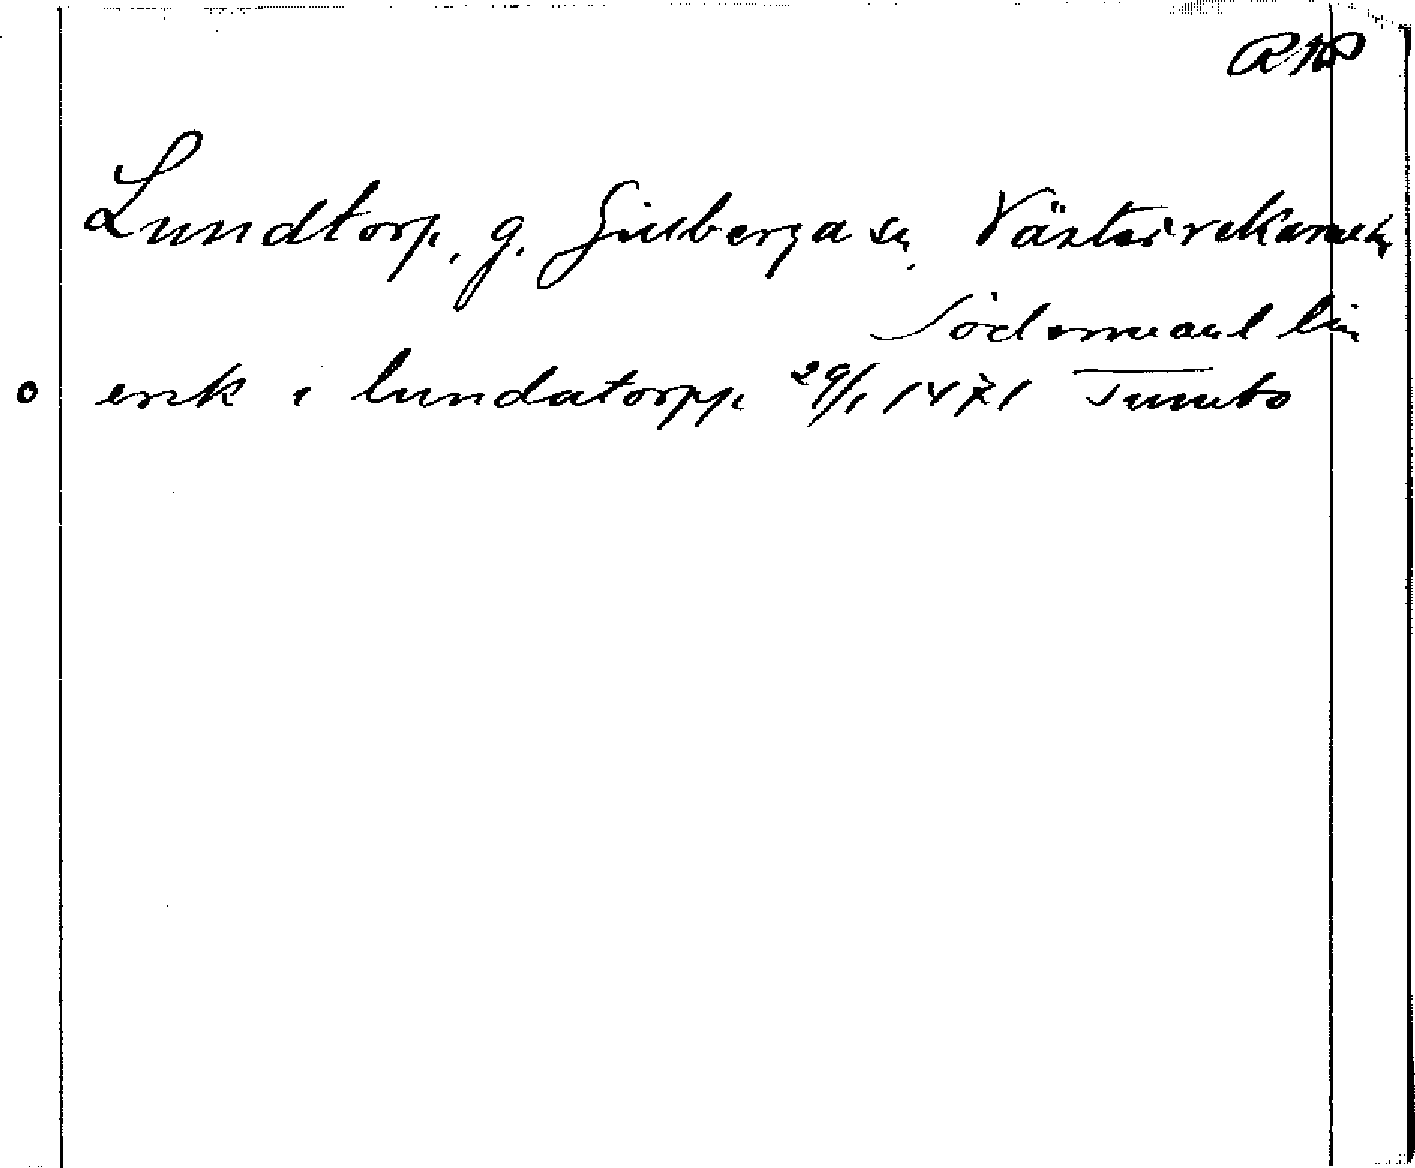 Lundtorp, g. Gillberga sn, Västerrekarne
Södermanl län
erik i lundatorpp 29/1 1471 Tumbo